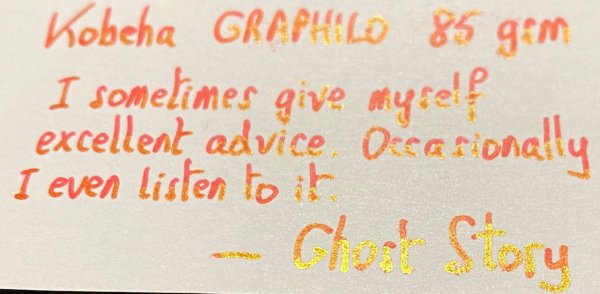 Kobeha GRAPHILO 85 gsm
I sometimes give myself
excellent advice. Occasionally
I even listen to it.
— Ghost Story